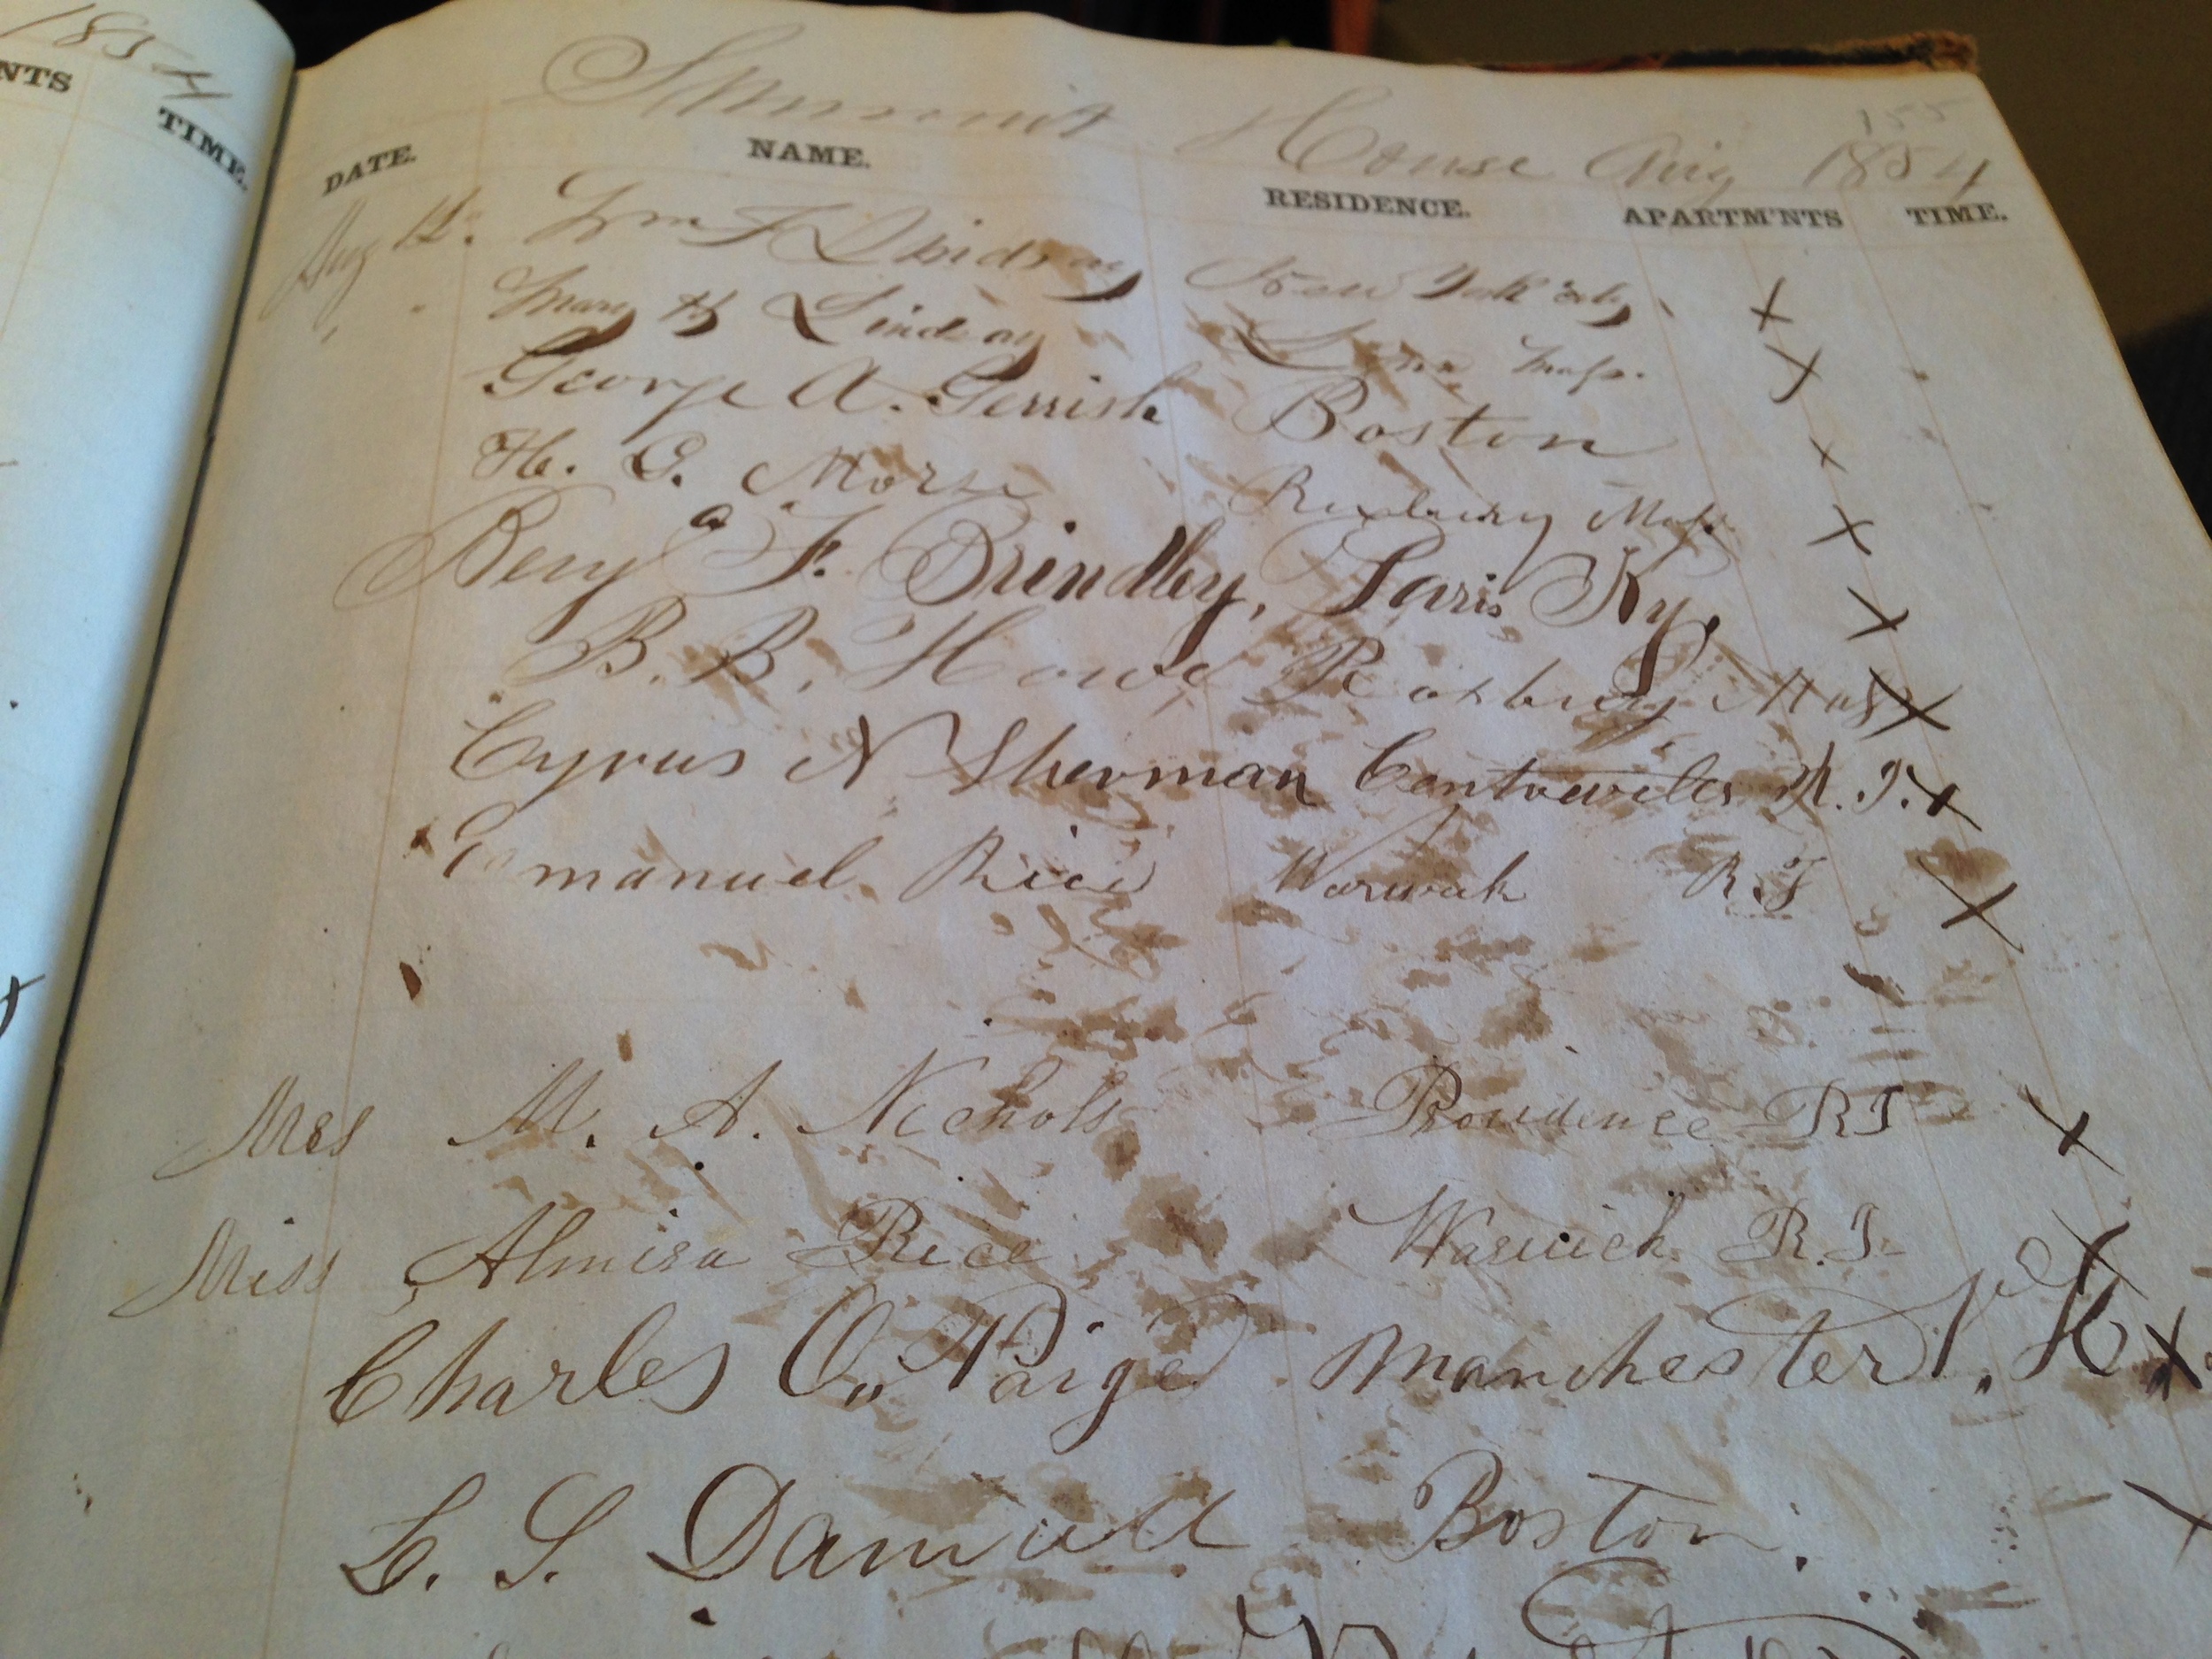 1854
NTS
TIME.
155
Summit House Aug 1854
DATE. NAME. RESIDENCE. APARTM'NTS TIME.
Aug 12. Wm F Lindsay New York City X
Mary Lindsay Lynn Mass. X
George A. Gerrish Boston X
H. G. Morse Roxbury Mass X
Benj F. Brindley, Paris Ky. X
B. B. Howe Roxbury Mass X
Cyrus N Sherman Centreville R. I. X
Emanuel Rice Warwick R.I X
Mrs M. A. Nichols Providence RI X
Miss Almira Rice Warwick R.I. X
Charles O. Paige Manchester N.H X
L. S. Boston. X